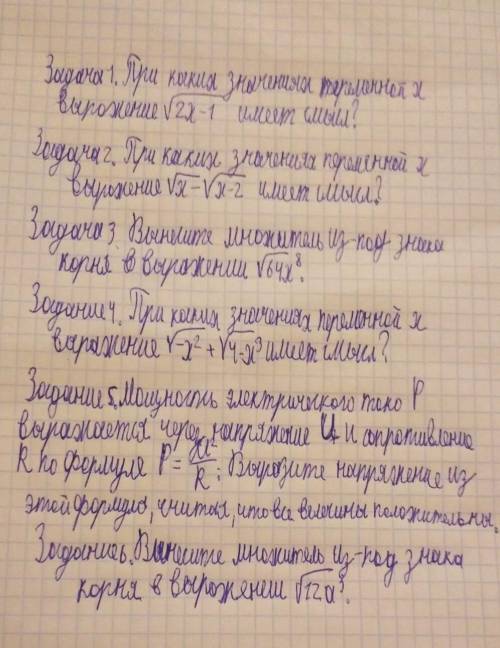 Задача 1. При каких значениях переменной x
выражение √2x-1 имеет смысл?
Задача 2. При каких значениях переменной x
выражение √x-√x-2 имеет смысл?
Задача 3 Вынесите множитель из-под знака
корня в выражении √64x⁸.
Задание 4. При каких значениях переменной x
выражение √-x² + √4-x³ имеет смысл?
Задание 5. Мощность электрического тока P
выражается через напряжение U и сопротивление
R по формуле P = /R; Выразите напряжение из
этой формулы, считая, что все величины положительны.
Задание 6. Вынесите множитель из-под знака
корня в выражении √12a³.